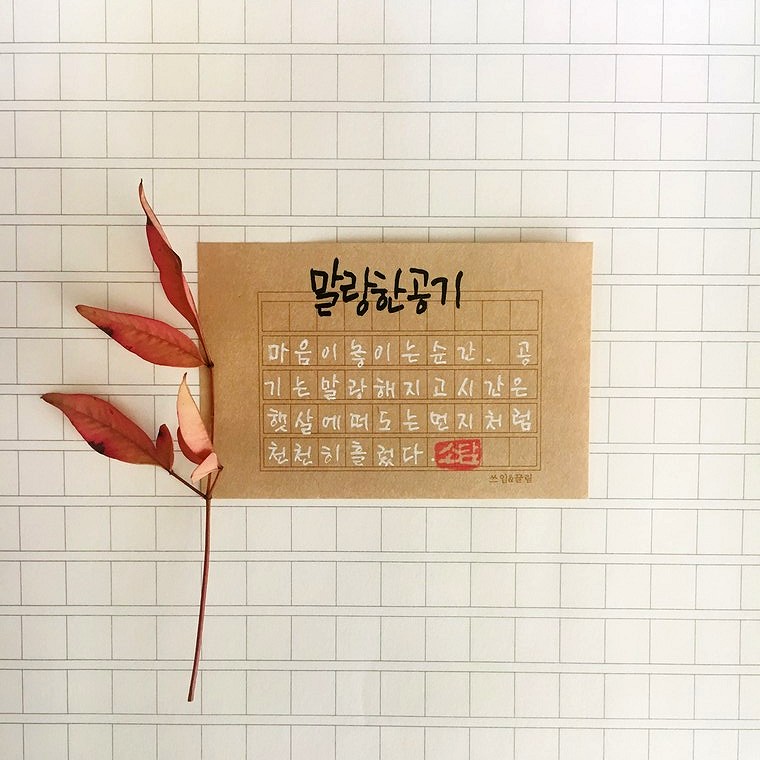 말랑한공기
마음이놓이는순간. 공
기는말랑해지고시간은
햇살에떠도는먼지처럼
천천히흘렀다. 소탐
쓰임&끌림